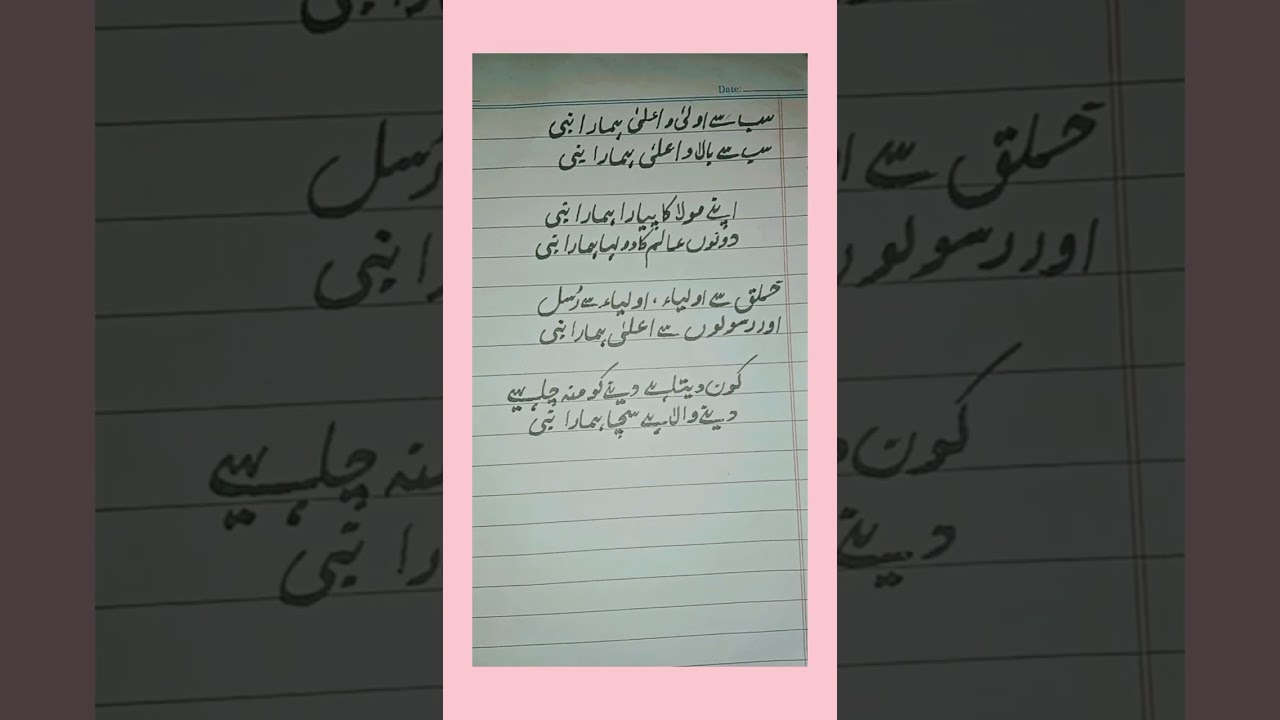 Date:
سب سے اولیٰ و اعلیٰ ہمارا نبی
سب سے بالا و اعلیٰ ہمارا نبی
اپنے مولا کا پیارا ہمارا نبی
دونوں عالم کا دولہا ہمارا نبی
خلق سے اولیاء ، اولیاء سے رُسل
اور رسولوں سے اعلیٰ ہمارا نبی
کون دیتا ہے دینے کو منہ چاہیے
دینے والا ہے سچا ہمارا نبی